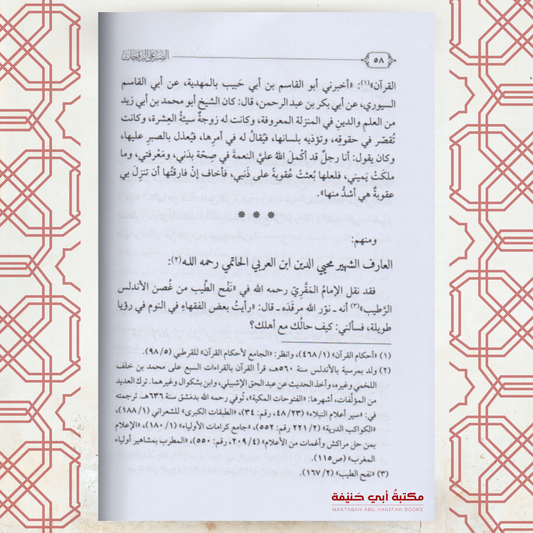 ٥٨
الصبر على الزوجات
القرآن»(١): «أخبرني أبو القاسم بن أبي حَبيب بالمهدية، عن أبي القاسم
السيوري، عن أبي بكر بن عبد الرحمن، قال: كان الشيخ أبو محمد بن أبي زيد
من العلم والدين في المنزلة المعروفة، وكانت له زوجةٌ سيئةُ العِشرة، وكانت
تُقصّر في حقوقِه، وتؤذيه بلسانها، فيُقالُ له في أمرِها، فيُعذل بالصبر عليها،
وكان يقول: أنا رجلٌ قد أكملَ اللهُ عليَّ النعمةَ في صِحّة بدَني، ومَعْرفتي، وما
ملكَتْ يَميني، فلعلها بُعثتْ عُقوبةً على ذَنبي، فأخاف إنْ فارقتُها أن تنزِلَ بي
عقوبةٌ هي أشدُّ منها».
* * *
ومنهم:
العارف الشهير محيي الدين ابن العربي الحاتمي رحمه الله(٢):
فقد نقل الإمامُ المقَّرِيّ رحمه الله في «نَفْح الطِّيب من غُصن الأندلس
الرَّطيب»(٣) أنه ـ نوّر الله مرقدَه ـ قال: «رأيتُ بعض الفقهاءِ في النوم في رؤيا
طويلة، فسألني: كيف حالُك مع أهلك؟
(١) «أحكام القرآن» (٤٦٨/١)، وانظر: «الجامع لأحكام القرآن» للقرطبي (٩٨/٥).
(٢) ولد بمرسية بالأندلس سنة ٥٦٠هـ، قرأ القرآن بالقراءات السبع على محمد بن خلف
اللخمي وغيره، وأخذ الحديث عن عبد الحق الإشبيلي، وابن بشكوال وغيرهما. ترك العديد
من المؤلّفات، أشهرها: «الفتوحات المكية»، تُوفي رحمه الله بدمَشق سنة ٦٣٦هـ. ترجمته
في: «سير أعلام النبلاء» (٤٨/٢٣، رقم: ٣٤)، «الطبقات الكبرى» للشعراني (١٨٨/١)،
«الكواكب الدرية» (٢٢١/٢ رقم: ٥٥٢)، «جامع كرامات الأولياء» (١٨٠/١)، «الإعلام
بمن حل مراكش وأغمات من الأعلام» (٢٠٩/٤، رقم: ٥٥٠)، «المطرب بمشاهير أولياء
المغرب» (ص١١٥).
(٣) «نفح الطيب» (١٦٧/٢).
مكتبة أبي حنيفة
MAKTABAH ABU HANIFAH BOOKS